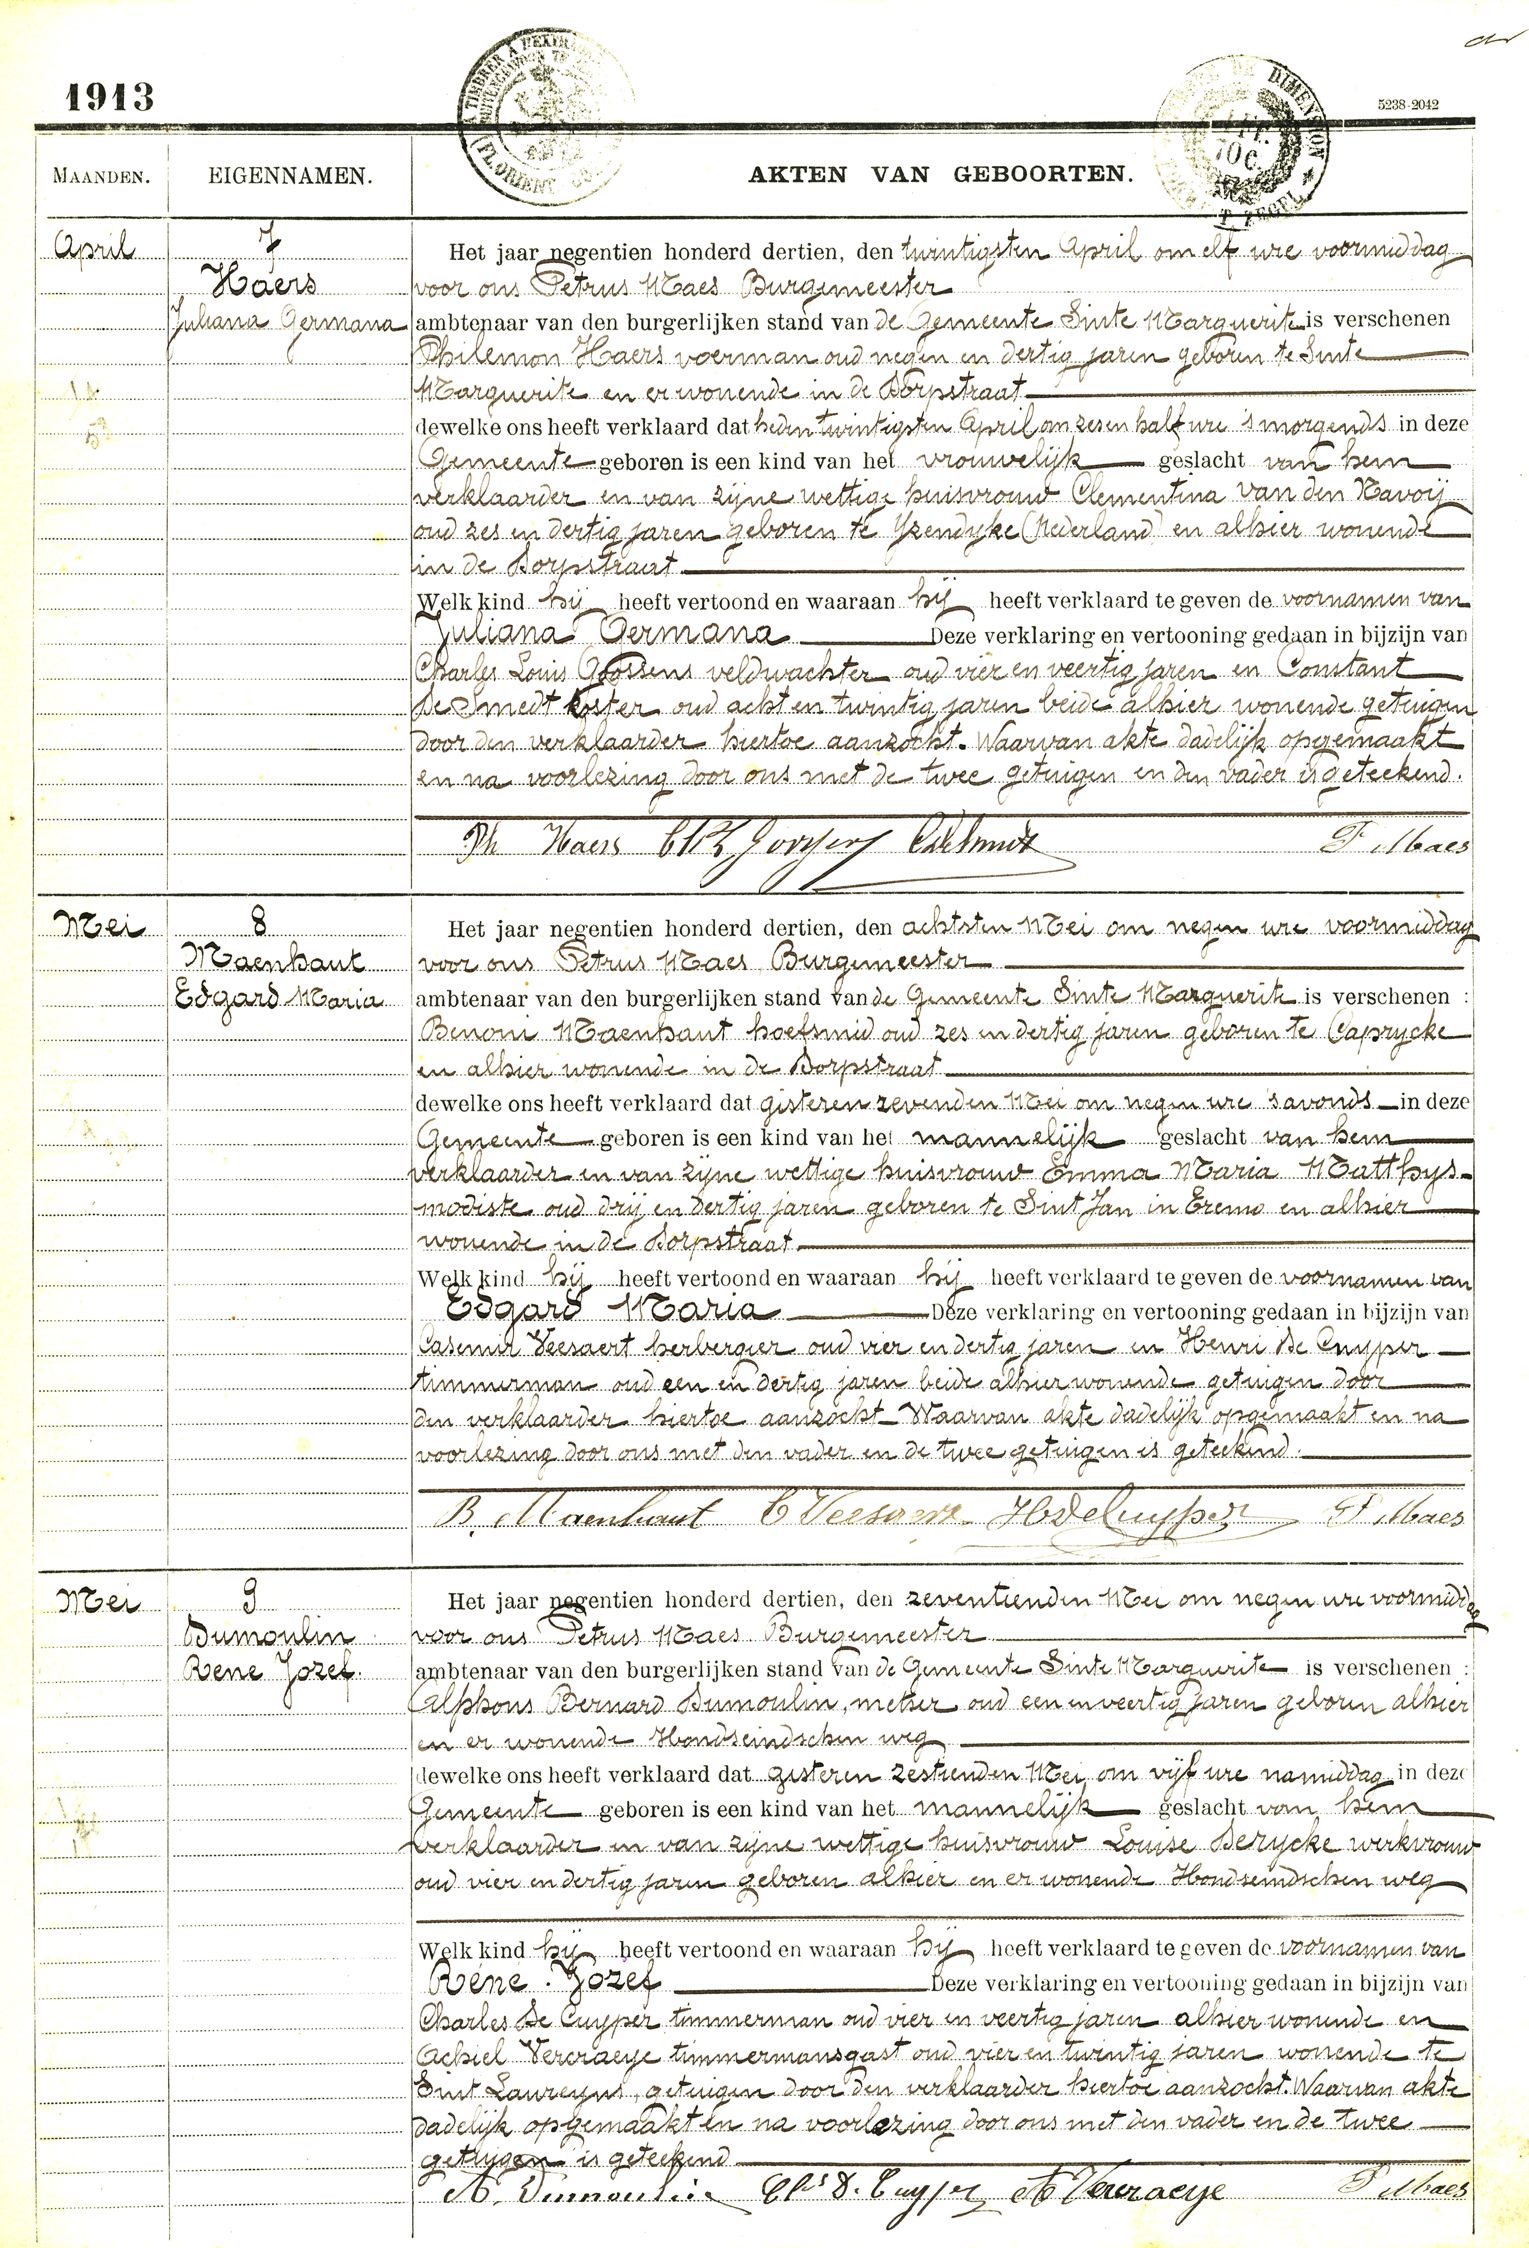 1913
5238-2042
MAANDEN.
EIGENNAMEN.
AKTEN VAN GEBOORTEN.
April
7
Haers
Juliana Germana
Het jaar negentien honderd dertien, den twintigsten April om elf ure voormiddag
voor ons Petrus Maes Burgemeester
ambtenaar van den burgerlijken stand van de Gemeente Sinte Marguerite is verschenen
Philemon Haers voerman oud negen en dertig jaren geboren te Sinte
Marguerite en er wonende in de Dorpstraat
dewelke ons heeft verklaard dat heden twintigsten April om zes en half ure 's morgends in deze
Gemeente geboren is een kind van het vrouwelijk geslacht van hem
verklaarder en van zijne wettige huisvrouw Clementina Van den Navoij
oud zes en dertig jaren geboren te Yzendyke (Nederland) en alhier wonende
in de Dorpstraat
Welk kind hij heeft vertoond en waaraan hij heeft verklaard te geven de voornamen van
Juliana Germana Deze verklaring en vertooning gedaan in bijzijn van
Charles Louis Goossens veldwachter oud vier en veertig jaren en Constant
De Smedt koster oud acht en twintig jaren beide alhier wonende getuigen
door den verklaarder hiertoe aanzocht. Waarvan akte dadelijk opgemaakt
en na voorlezing door ons met de twee getuigen en den vader is geteekend.
Ph Haers C DeSmedt P Maes
Mei
8
Maenhaut
Edgard Maria
Het jaar negentien honderd dertien, den achtsten Mei om negen ure voormiddag
voor ons Petrus Maes Burgemeester
ambtenaar van den burgerlijken stand van de Gemeente Sinte Marguerite is verschenen :
Benoni Maenhaut hoefsmid oud zes en dertig jaren geboren te Caprycke
en alhier wonende in de Dorpstraat
dewelke ons heeft verklaard dat gisteren zevenden Mei om negen ure 's avonds in deze
Gemeente geboren is een kind van het mannelijk geslacht van hem
verklaarder en van zijne wettige huisvrouw Emma Maria Matthys
modiste oud drij en dertig jaren geboren te Sint Jan in Eremo en alhier
wonende in de Dorpstraat
Welk kind hij heeft vertoond en waaraan hij heeft verklaard te geven de voornamen van
Edgard Maria Deze verklaring en vertooning gedaan in bijzijn van
Casemir Veesaert herbergier oud vier en dertig jaren en Henri De Cuyper
timmerman oud een en dertig jaren beide alhier wonende getuigen door
den verklaarder hiertoe aanzocht Waarvan akte dadelijk opgemaakt en na
voorlezing door ons met den vader en de twee getuigen is geteekend.
B. Maenhaut C Veesaert H De Cuyper P Maes
Mei
9
Dumoulin
Rene Jozef.
Het jaar negentien honderd dertien, den zeventienden Mei om negen ure voormiddag
voor ons Petrus Maes Burgemeester
ambtenaar van den burgerlijken stand van de Gemeente Sinte Marguerite is verschenen :
Alphons Bernard Dumoulin, metser oud een en veertig jaren geboren alhier
en er wonende Hondseindschen weg
dewelke ons heeft verklaard dat gisteren zestienden Mei om vijf ure namiddag in deze
Gemeente geboren is een kind van het mannelijk geslacht van hem
verklaarder en van zijne wettige huisvrouw Louise Derycke werkvrouw
oud vier en dertig jaren geboren alhier en er wonende Hondseindschen weg
Welk kind hij heeft vertoond en waaraan hij heeft verklaard te geven de voornamen van
Réné. Jozef Deze verklaring en vertooning gedaan in bijzijn van
Charles De Cuyper timmerman oud vier en veertig jaren alhier wonende en
Achiel Vercraeye timmermansgast oud vier en twintig jaren wonende te
Sint Laureyns, getuigen door den verklaarder hiertoe aanzocht. Waarvan akte
dadelijk opgemaakt en na voorlezing door ons met den vader en de twee
getuigen is geteekend
A. Dumoulin Chs D. Cuyper A Vercraeye P Maes